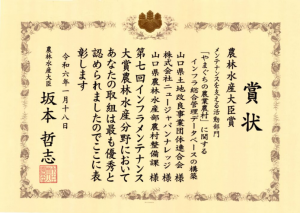 賞状
農林水産大臣賞
メンテナンスを支える活動部門
「やまぐちの農業農村」に関する
インフラ総合管理データベースの構築
山口県土地改良事業団体連合会 様
株式会社ニュージャパンナレッジ 様
山口県農林水産部農村整備課 様
第七回インフラメンテナンス
大賞農林水産分野において
あなたの取組は最も優秀と
認められましたのでここに表
彰します
令和六年一月十八日
農林水産大臣
坂本哲志